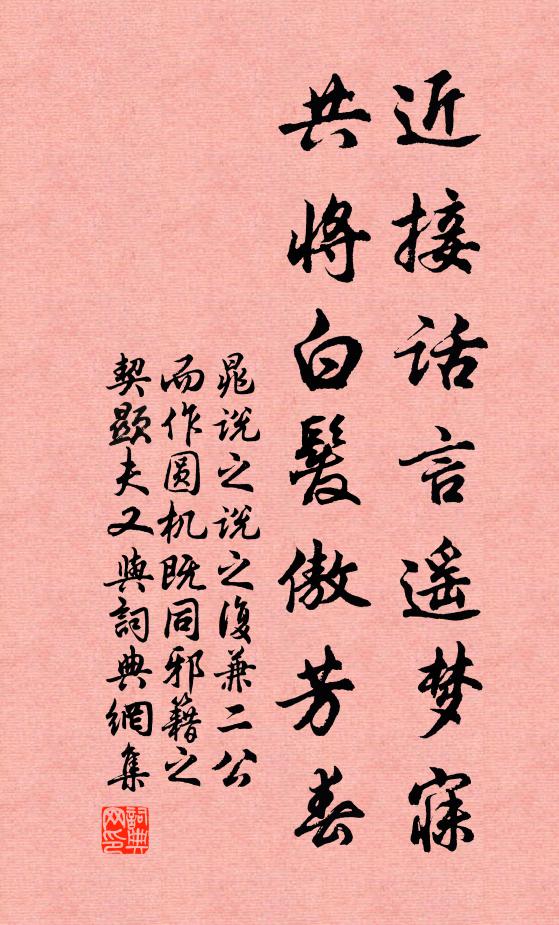 近接话言遥梦寐
共将白髮傲芳春
晁说之说之復兼二公
而作圆机既同邪籍之
契顕夫又與詞典網集
詞典
网印